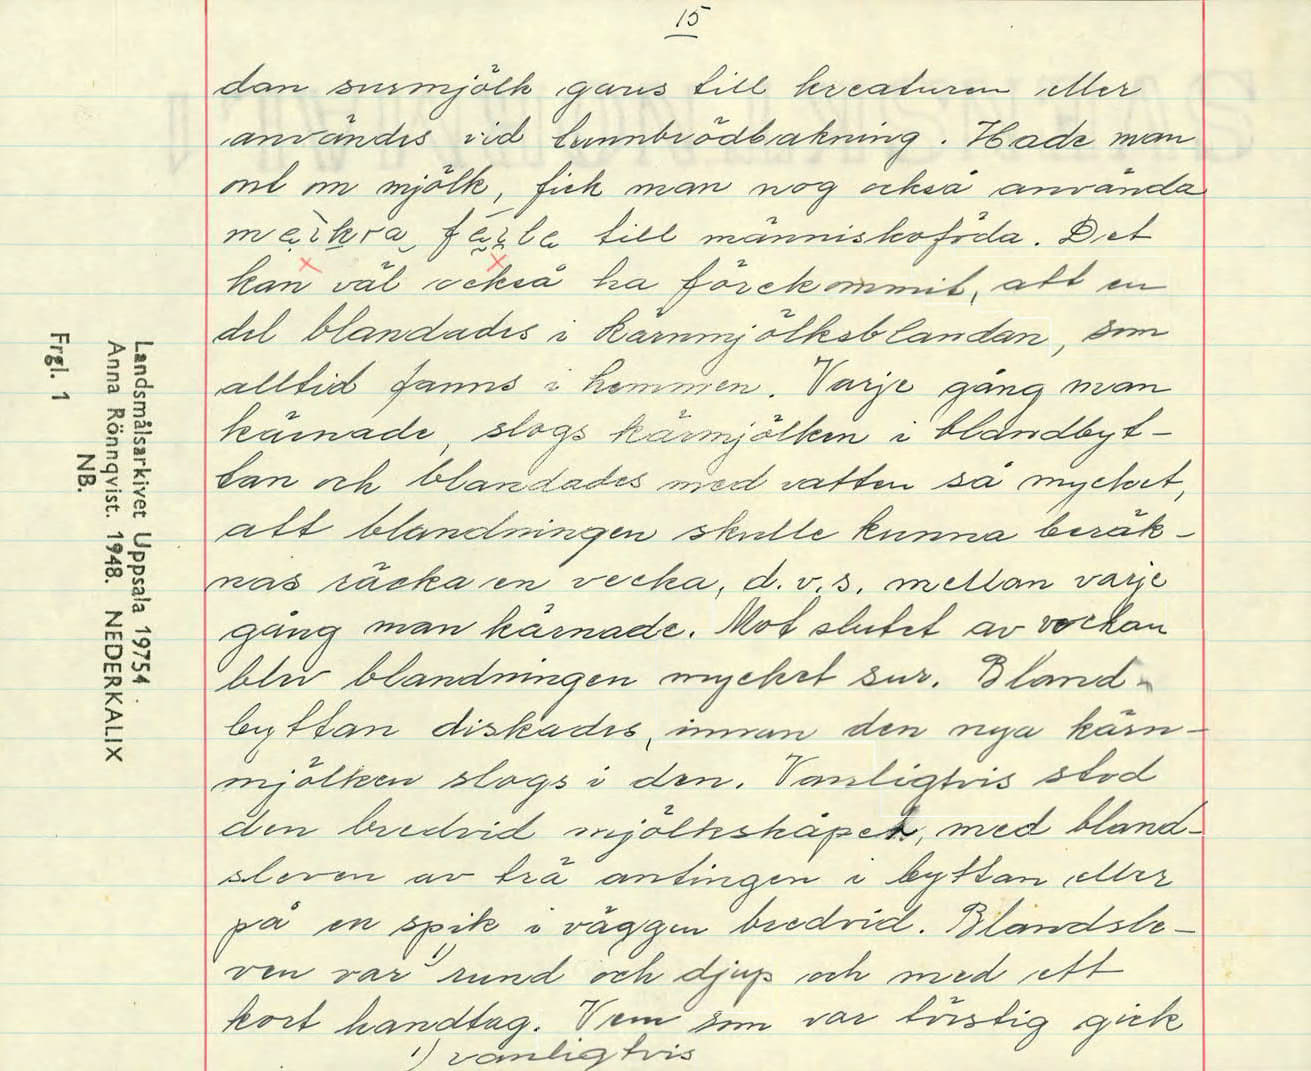 15
dan surmjölk gavs till kreaturen eller
användes vid tunnbrödbakning. Hade man
ont om mjölk, fick man nog också använda
till människoföda. Det
kan väl också ha förekommit, att en
del blandades i kärnmjölksblandan, som
alltid fanns i hemmen. Varje gång man
kärnade, slogs kärnmjölken i blandbyt-
tan och blandades med vatten så mycket,
att blandningen skulle kunna beräk-
nas räcka en vecka, d.v.s. mellan varje
gång man kärnade. Mot slutet av veckan
blev blandningen mycket sur. Bland-
byttan diskades, innan den nya kärn-
mjölken slogs i den. Vanligtvis stod
den bredvid mjölkskåpet, med bland-
sleven av trä antingen i byttan eller
på en spik i väggen bredvid. Blandsle-
ven var 1) rund och djup och med ett
kort handtag. Vem som var törstig gick
1) vanligtvis
Landsmålsarkivet Uppsala 19754
Anna Rönnqvist. 1948. NEDERKALIX
NB.
Frgl. 1